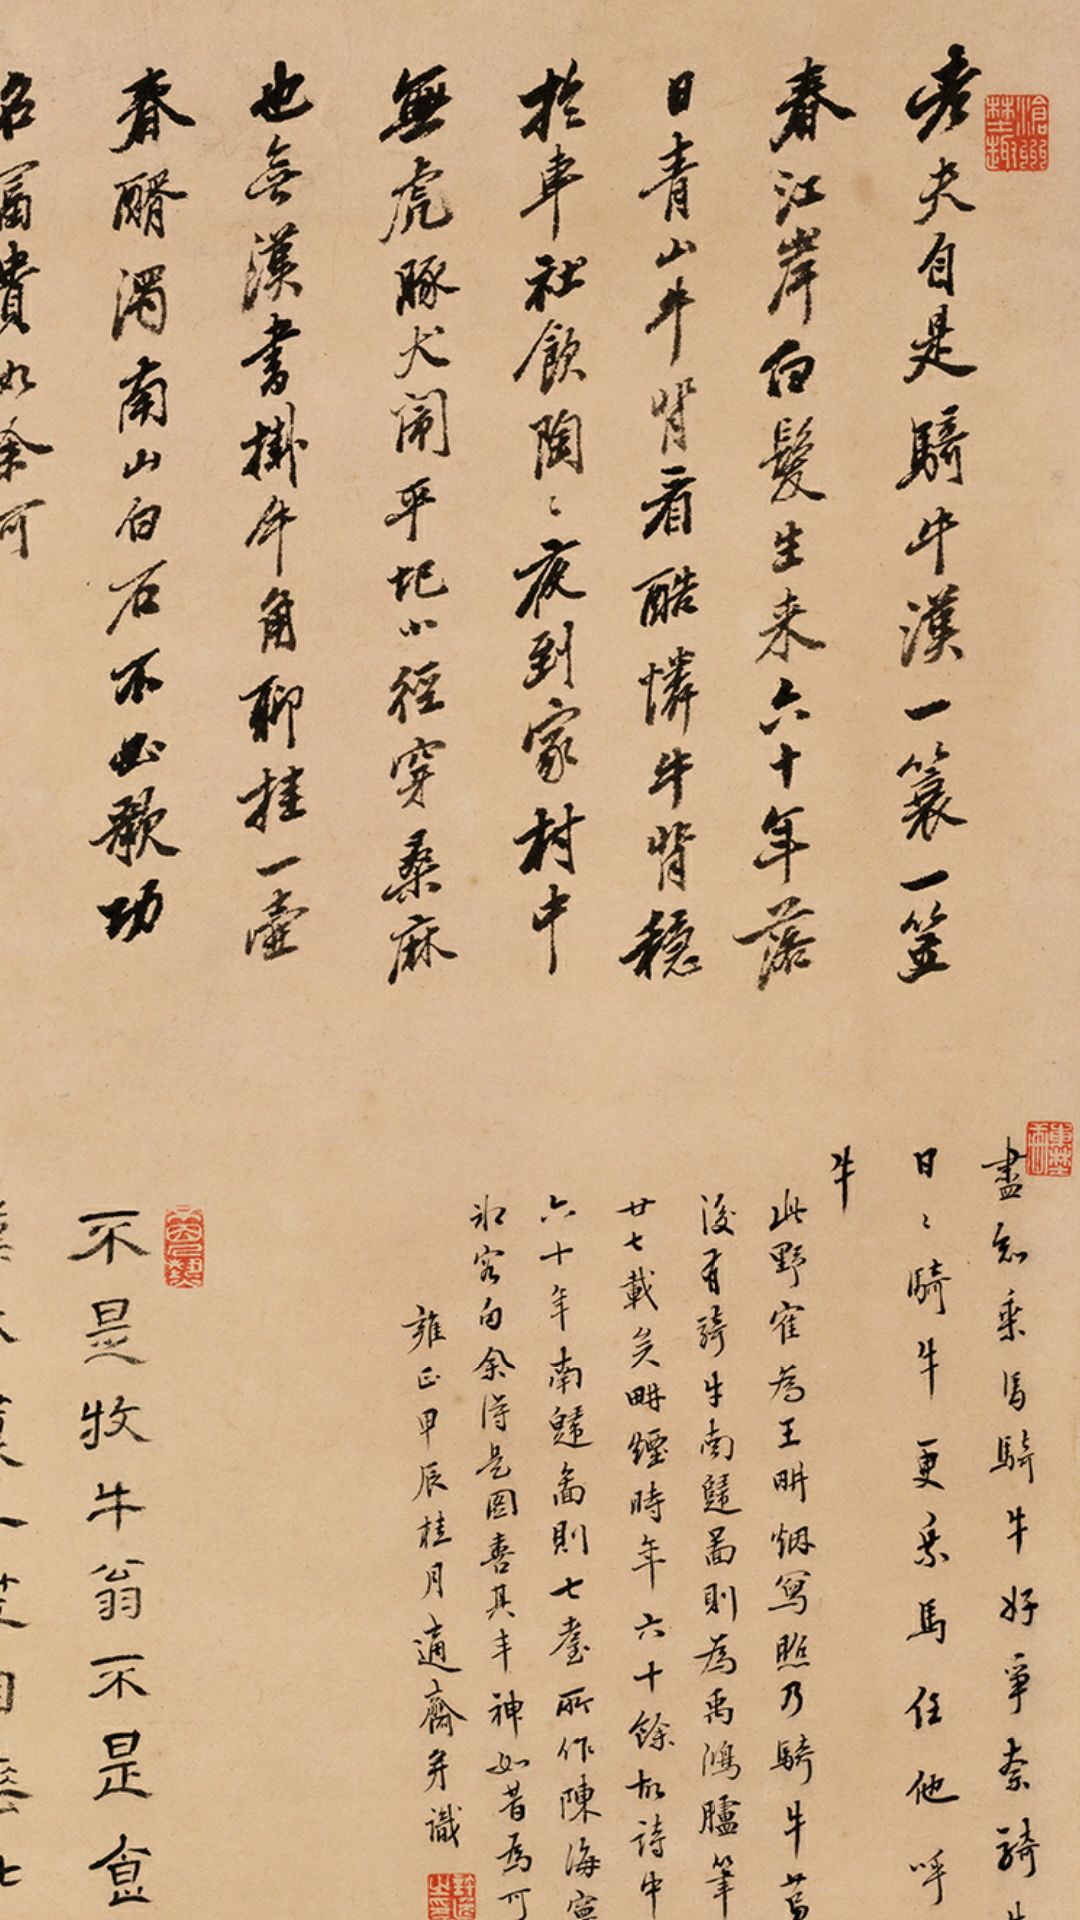 老夫自是騎牛漢一蓑一笠
春江岸白髮生來六十年落
日青山牛背看酷憐牛背穩
於車社飲陶〻夜到家村中
無虎豚犬鬧平地小徑穿桑麻
也無漢書掛牛角聊挂一壺
春醑濁南山白石不必歌功
名富貴如余何
盡知乘馬騎牛好爭奈騎牛
日〻騎牛更乘馬任他呼
牛
此野崔為王畊烟寫照乃騎牛
後有騎牛南歸圖則為禹鴻臚筆
廿七載矣畊煙時年六十餘故詩中
六十年南歸圖則七耋所作陳海寧
冰客向余得是圖喜其丰神如昔為可
雍正甲辰桂月適齋并識
不是牧牛翁不是食